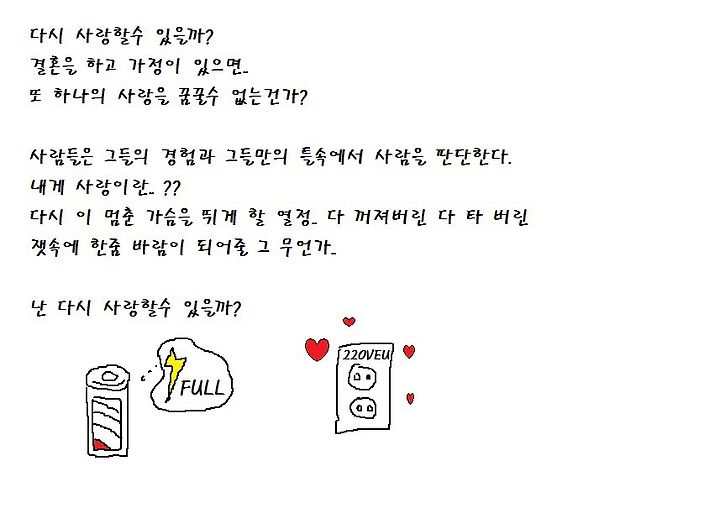 다시 사랑할수 있을까?
결혼을 하고 가정이 있으면..
또 하나의 사랑을 꿈꿀수 없는건가?
사람들은 그들의 경험과 그들만의 틀속에서 사람을 판단한다.
내게 사랑이란.. ??
다시 이 멈춘 가슴을 뛰게 할 열정.. 다 꺼져버린 다 타 버린
잿속에 한줌 바람이 되어줄 그 무언가..
난 다시 사랑할수 있을까?
FULL
220VEU